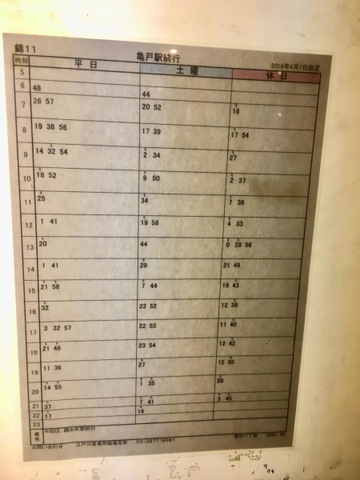 錦11
亀戸駅前行
2016年4月1日改正
時刻 平日 土曜 休日
5
6 46 44
7 26 57 20 52 16
8 19 38 56 17 39 17 54
9 14 32 54 2 34 27
10 18 52 9 50 2 37
11 25 34 7 36
12 1 41 19 58 4 33
13 20 44 0 28 56
14 1 41 29 21 48
15 21 58 7 44 16 43
16 37 22 52 12 39
17 3 32 57 22 52 11 40
18 21 46 23 54 12 42
19 11 36 27 12 50
20 14 55 1 35 28
21 37 7 41 3 45
22 17 16
23
備考
お問い合わせ 江戸川営業所臨海支所